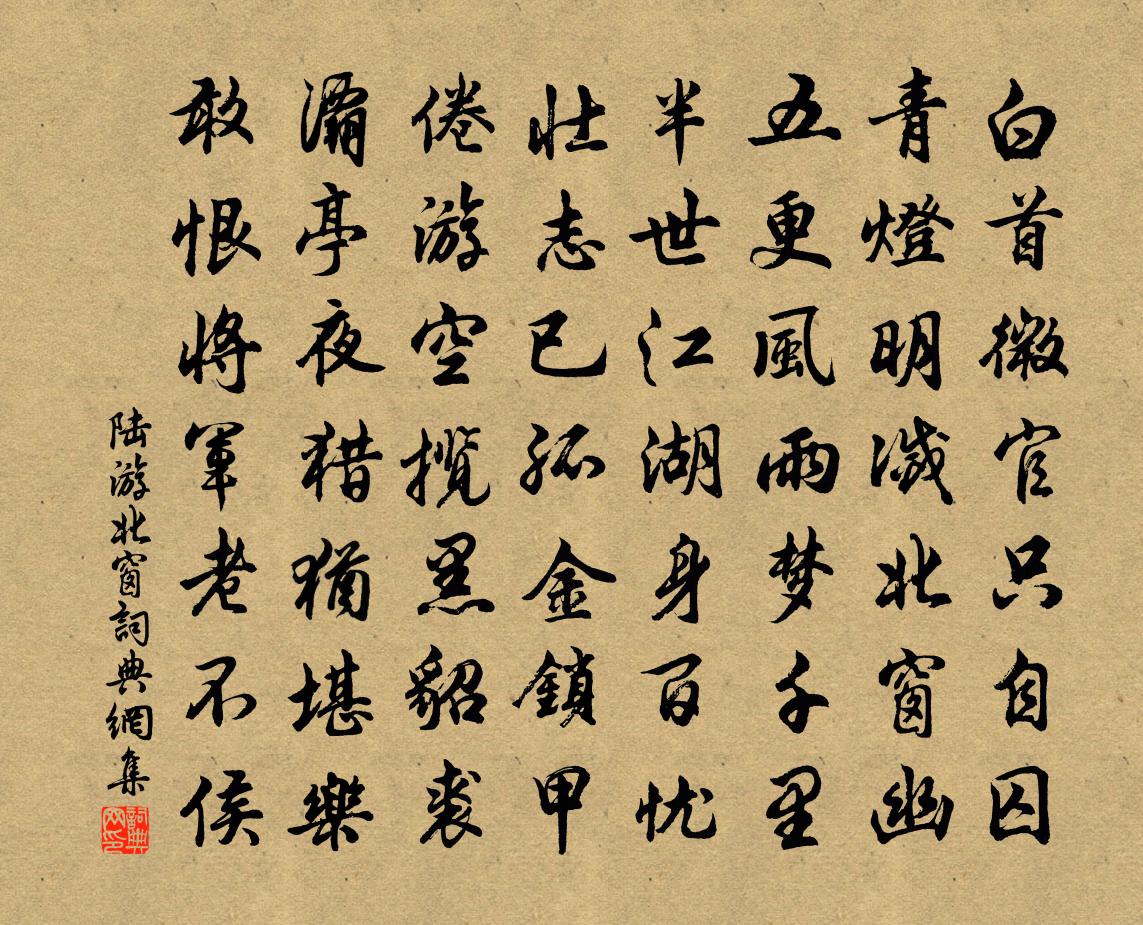 白首微官只自囚
青燈明滅北窗幽
五更風雨梦千里
半世江湖身百忧
壮志已孤金鎖甲
倦游空揽黑貂裘
灞亭夜猎猶堪樂
敢恨将軍老不侯
陆游北窗詞典網集
詞典網印